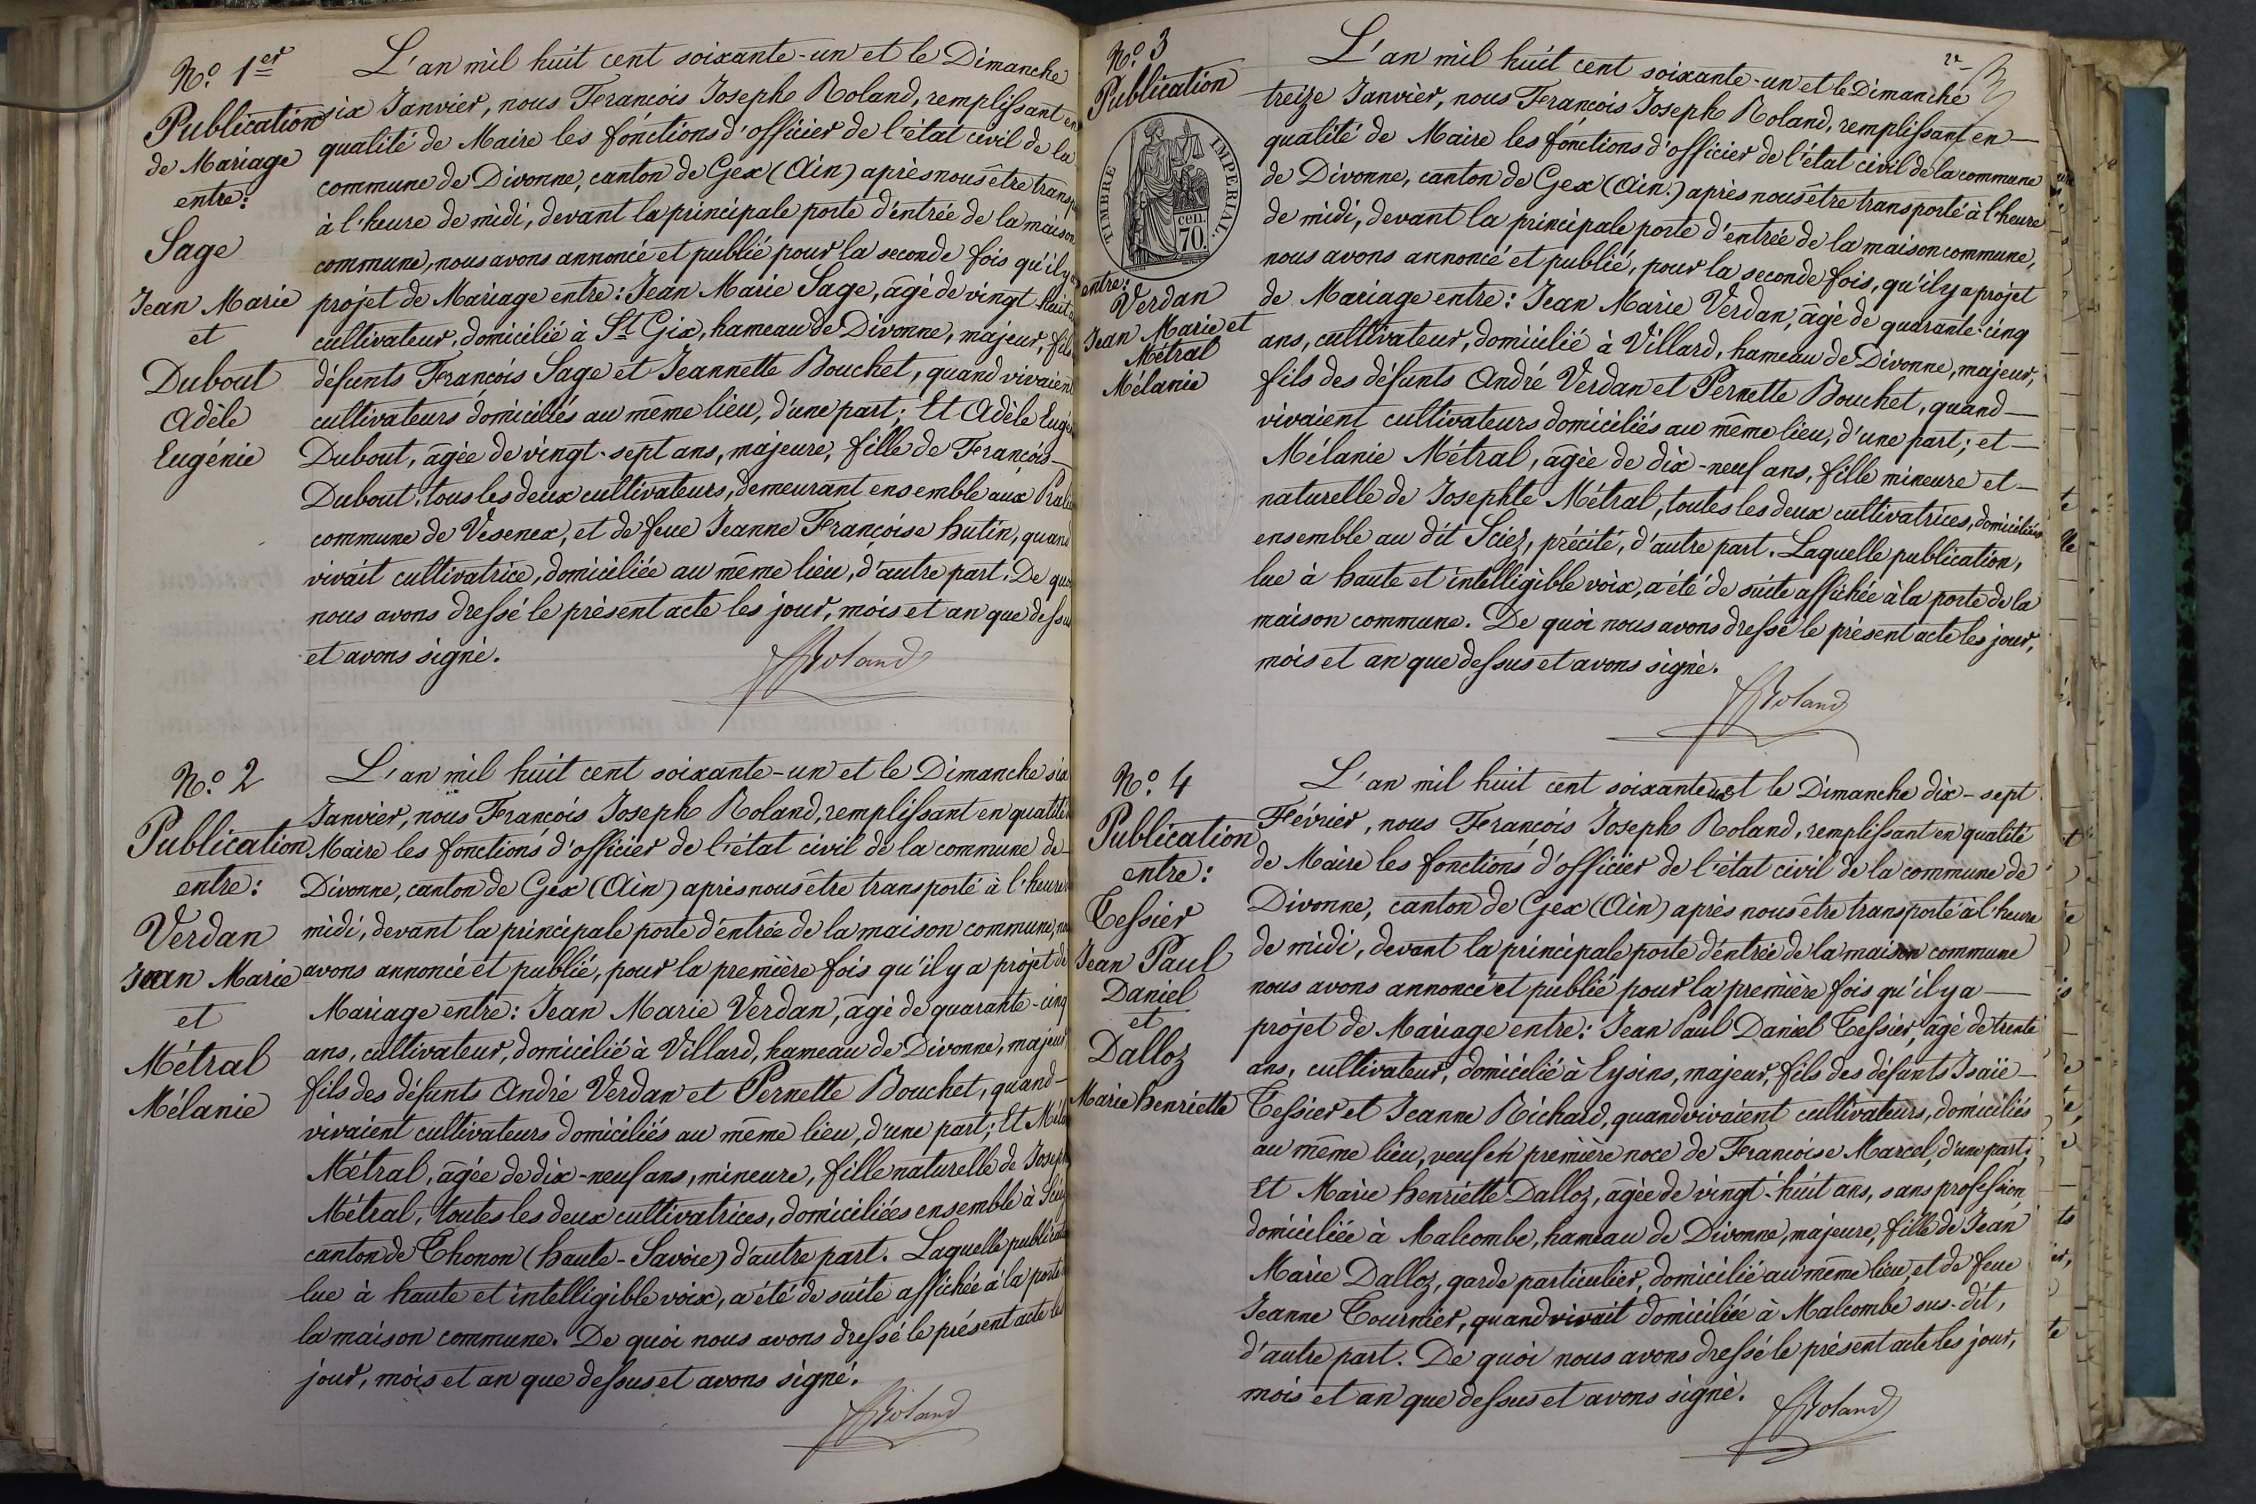 N.o 1er
Publication
de Mariage
entre:
Sage
Jean Marie
et
Dubout
Adèle
Eugénie
L'an mil huit cent soixante-un et le Dimanche
six Janvier, nous François Joseph Roland, remplissant en
qualité de Maire les fonctions d'officier de l'état civil de la
commune de Divonne, canton de Gex (Ain) après nous être transp
à l'heure de midi, devant la principale porte d'entrée de la maison
commune, nous avons annoncé et publié pour la seconde fois qu'il y
projet de Mariage entre: Jean Marie Sage, âgé de vingt-huit
cultivateur, domicilié à St Gix, hameau de Divonne, majeur, fils
défunts François Sage et Jeannette Bouchet, quand vivaient
cultivateurs domiciliés au même lieu, d'une part; Et Adèle Eugé
Dubout, âgée de vingt-sept ans, majeure, fille de François
Dubout, tous les deux cultivateurs, demeurant ensemble aux
commune de Vesenex, et de feue Jeanne Françoise hutin, quand
vivait cultivatrice, domiciliée au même lieu, d'autre part. De quo
nous avons dressé le présent acte les jour, mois et an que dessu
et avons signé.
FJRoland
N.o 2
Publication
entre:
Verdan
Jean Marie
et
Métral
Mélanie
L'an mil huit cent soixante-un et le Dimanche six
Janvier, nous François Joseph Roland, remplissant en qualité
Maire les fonctions d'officier de l'état civil de la commune de
Divonne, canton de Gex (Ain) après nous être transporté à l'heure
midi, devant la principale porte d'entrée de la maison commune, no
avons annoncé et publié, pour la première fois qu'il y a projet de
Mariage entre: Jean Marie Verdan, âgé de quarante-cinq
ans, cultivateur, domicilié à Villard, hameau de Divonne, majeur
fils des défunts André Verdan et Pernette Bouchet, quand
vivaient cultivateurs domiciliés au même lieu, d'une part; Et Méla
Métral, âgée de dix-neuf ans, mineure, fille naturelle de Joseph
Métral, toutes les deux cultivatrices, domiciliées ensemble à Sciez
canton de Thonon (haute-Savoie) d'autre part. Laquelle publicat
lue à haute et intelligible voix, a été de suite affichée à la porte
la maison commune. De quoi nous avons dressé le présent acte les
jour, mois et an que dessus et avons signé.
FJRoland
N.o 3
Publication
TIMBRE IMPERIAL
cen.
70.
entre:
Verdan
Jean Marie et
Métral
Mélanie
2e
L'an mil huit cent soixante-un et le Dimanche
treize Janvier, nous François Joseph Roland, remplissant en
qualité de Maire les fonctions d'officier de l'état civil de la commune
de Divonne, canton de Gex (Ain.) après nous être transporté à l'heure
de midi, devant la principale porte d'entrée de la maison commune,
nous avons annoncé et publié, pour la seconde fois, qu'il y a projet
de Mariage entre: Jean Marie Verdan, âgé de quarante-cinq
ans, cultivateur, domicilié à Villard, hameau de Divonne, majeur,
fils des défunts André Verdan et Pernette Bouchet, quand
vivaient cultivateurs domiciliés au même lieu, d'une part; et
Mélanie Métral, âgée de dix-neuf ans, fille mineure et
naturelle de Josephte Métral, toutes les deux cultivatrices, domiciliées
ensemble au dit Sciez, précité, d'autre part. Laquelle publication,
lue à haute et intelligible voix, a été de suite affichée à la porte de la
maison commune. De quoi nous avons dressé le présent acte les jour,
mois et an que dessus et avons signé.
FJRoland
N.o 4
Publication
entre:
Tessier
Jean Paul
Daniel
et
Dalloz
Marie henriette
L'an mil huit cent soixante un et le Dimanche dix-sept
Février, nous François Joseph Roland, remplissant en qualité
de Maire les fonctions d'officier de l'état civil de la commune de
Divonne, canton de Gex (Ain) après nous être transporté à l'heure
de midi, devant la principale porte d'entrée de la maison commune
nous avons annoncé et publié pour la première fois qu'il y a
projet de Mariage entre: Jean Paul Daniel Tessier, âgé de trente
ans, cultivateur, domicilié à Eysins, majeur, fils des défunts Isaïe
Tessier et Jeanne Richard, quand vivaient cultivateurs, domiciliés
au même lieu, veuf en première noce de Françoise Marcel, d'une part;
Et Marie henriette Dalloz, âgée de vingt-huit ans, sans profession,
domiciliée à Malcombe, hameau de Divonne, majeure, fille de Jean
Marie Dalloz, garde particulier, domicilié au même lieu, et de feue
Jeanne Tournier, quand vivait domiciliée à Malcombe sus-dit,
d'autre part. De quoi nous avons dressé le présent acte les jour,
mois et an que dessus et avons signé.
FJRoland